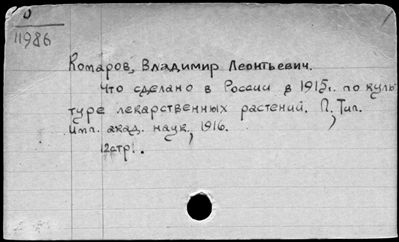 11986
Комаров, Владимир Леонтьевич.
Что сделано в России в 1915г. по куль-
туре лекарственных растений. П., Тип.
имп. акад. наук, 1916.
12стр.